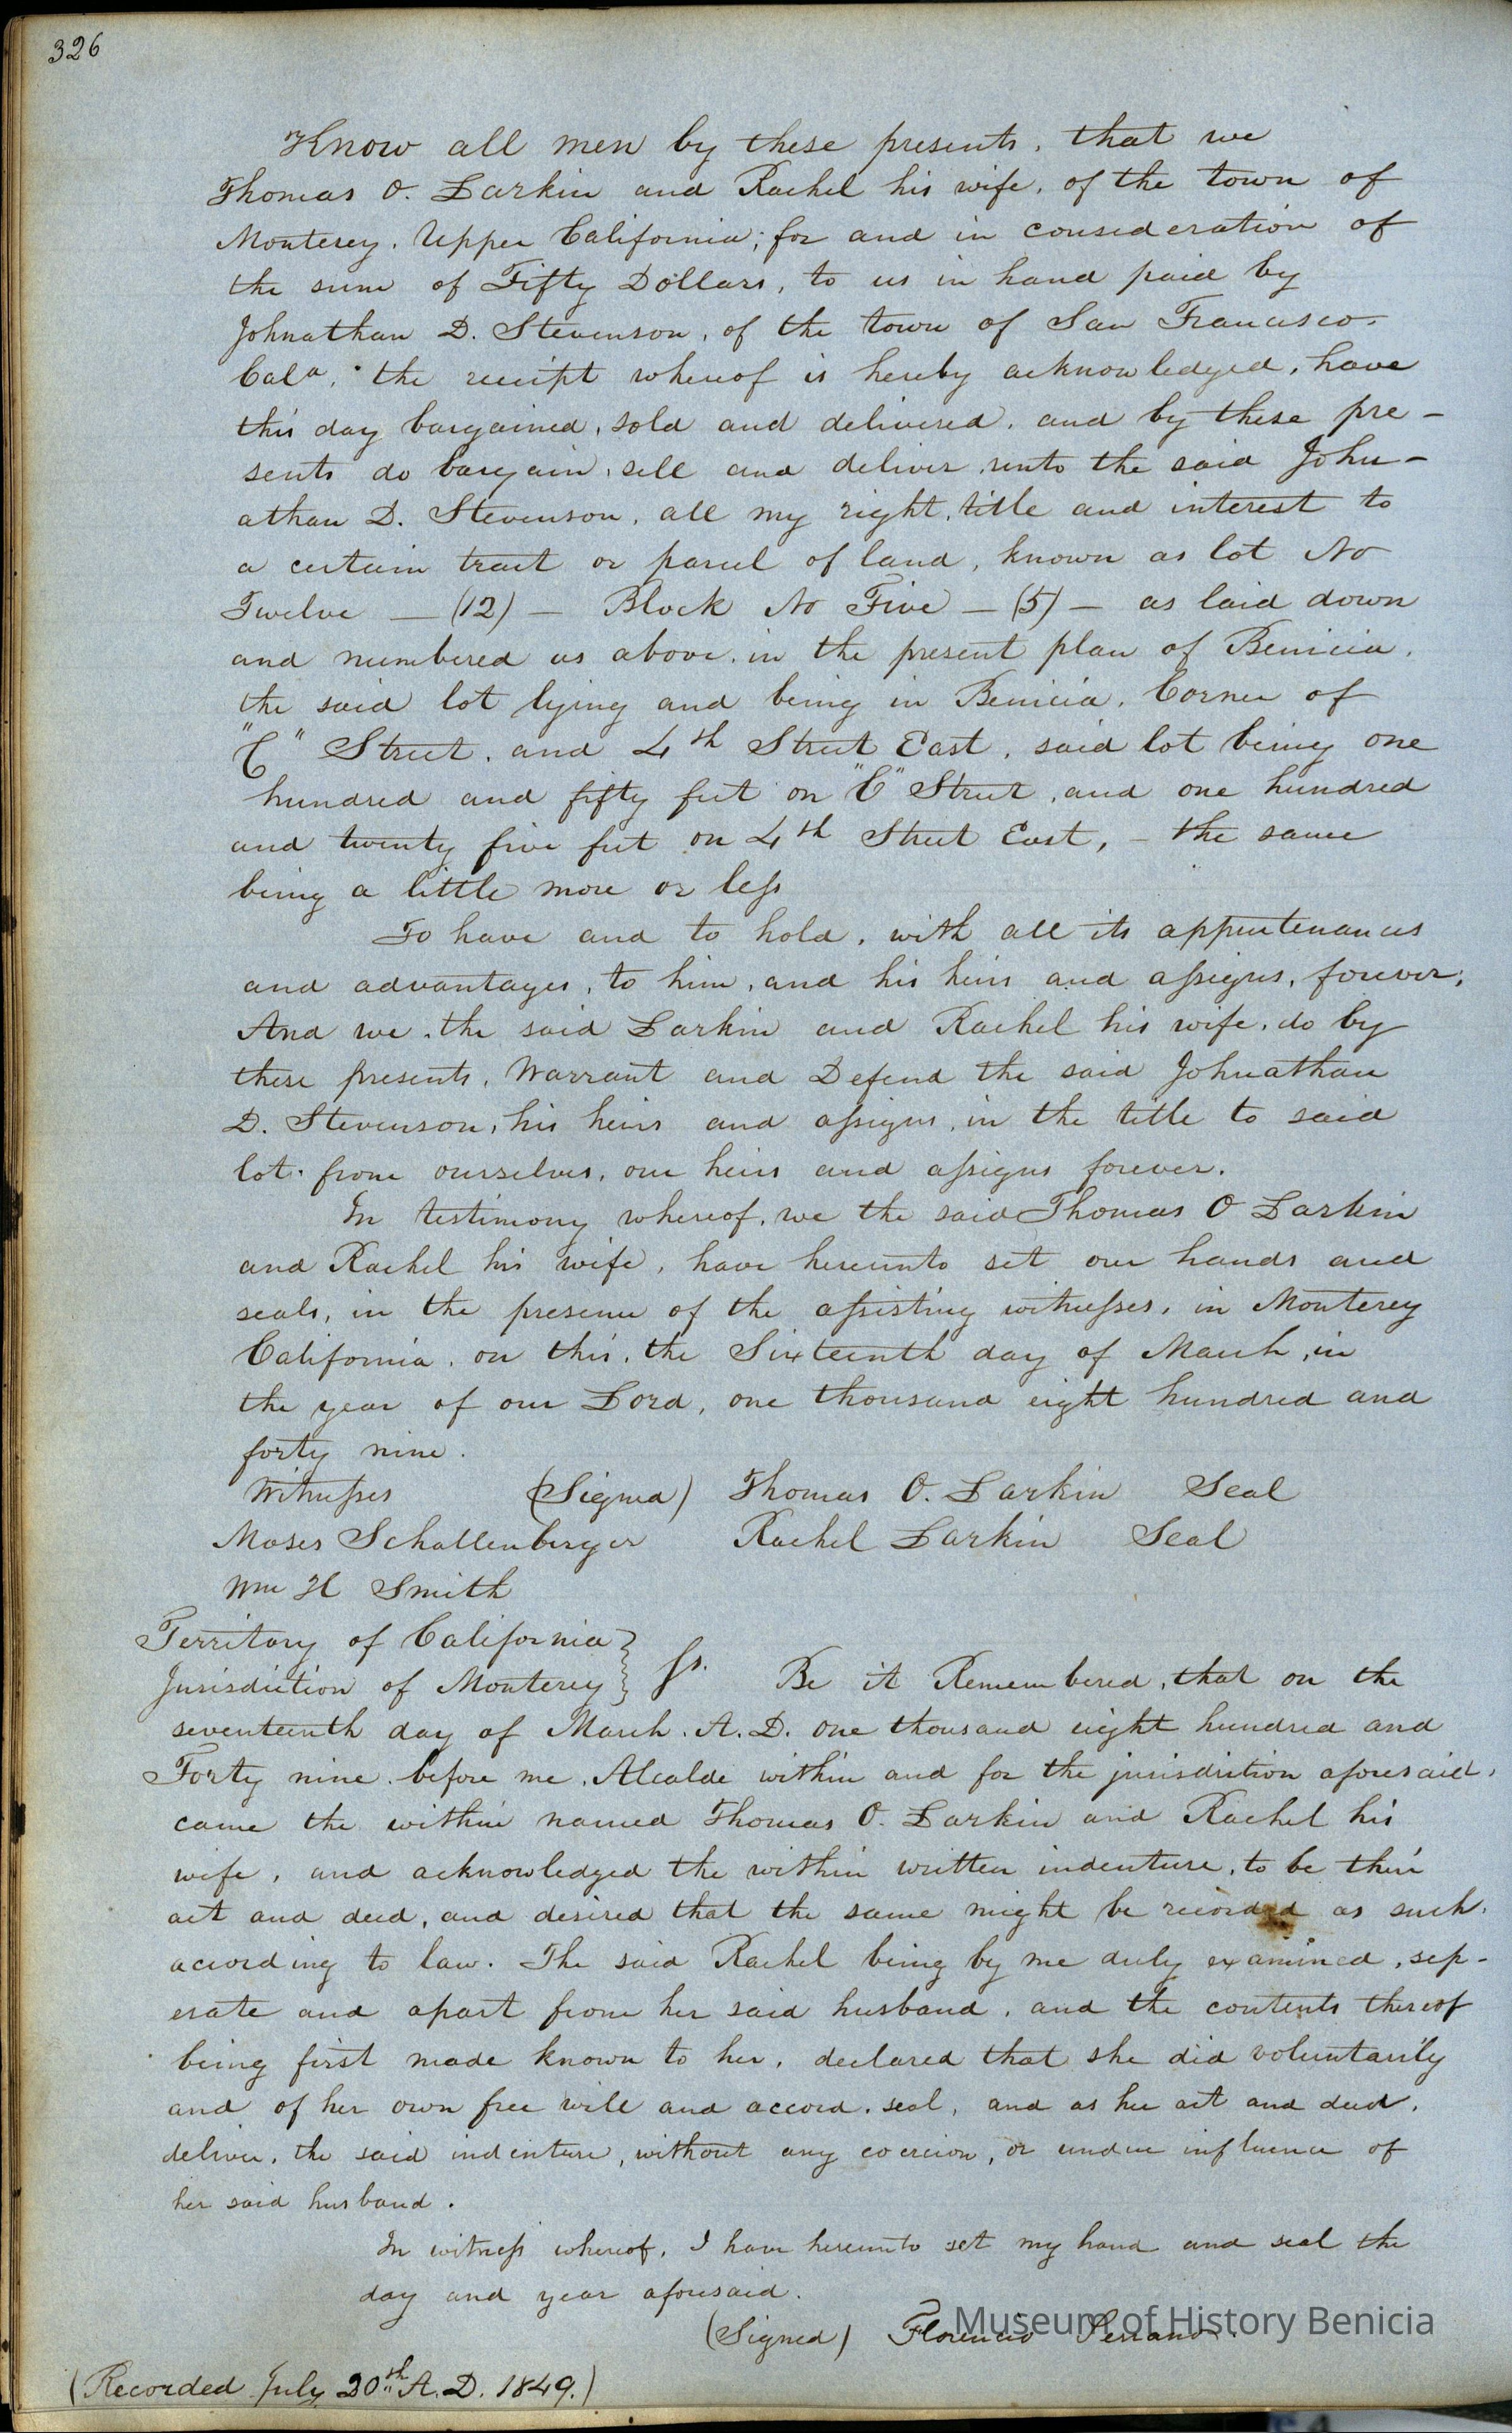 326
Know all men by these presents, that we
Thomas O. Larkin and Rachel his wife, of the town of
Monterey, Upper California; for and in consideration of
the sum of Fifty Dollars, to us in hand paid by
Johnathan D. Stevenson, of the town of San Francisco-
Cala, the receipt whereof is hereby acknowledged, have
this day bargained, sold and delivered, and by these pre-
sents do bargain, sell and deliver, unto the said John-
athan D. Stevenson, all my right, title and interest to
a certain tract or parcel of land, known as lot No
Twelve — (12) — Block No Five — (5) — as laid down
and numbered as above, in the present plan of Benicia,
the said lot lying and being in Benicia, Corner of
"C" Street, and 4th Street East, said lot being one
hundred and fifty feet on "C" Street, and one hundred
and twenty five feet on 4th Street East, - the same
being a little more or less
To have and to hold, with all its appurtenances
and advantages, to him, and his heirs and assigns, forever;
And we, the said Larkin and Rachel his wife, do by
these presents, Warrant and Defend the said Johnathan
D. Stevenson, his heirs and assigns, in the title to said
lot, from ourselves, our heirs and assigns forever.
In testimony whereof, we the said Thomas O Larkin
and Rachel his wife, have hereunto set our hands and
seals, in the presence of the assisting witnesses, in Monterey
California, on this, the Sixteenth day of March, in
the year of our Lord, one thousand eight hundred and
forty nine.
Witnesses (Signed) Thomas O. Larkin Seal
Moses Schallenberger Rachel Larkin Seal
Wm H Smith
Territory of California
Jurisdiction of Monterey } ss. Be it Remembered, that on the
seventeenth day of March, A.D. one thousand eight hundred and
Forty nine, before me, Alcalde within and for the jurisdiction aforesaid,
came the within named Thomas O. Larkin and Rachel his
wife, and acknowledged the within written indenture, to be their
act and deed, and desired that the same might be recorded as such,
according to law. The said Rachel being by me duly examined, sep-
erate and apart from her said husband, and the contents thereof
being first made known to her, declared that she did voluntarily
and of her own free will and accord, seal, and as her act and deed,
deliver, the said indenture, without any coercion, or undue influence of
her said husband.
In witness whereof, I have hereunto set my hand and seal the
day and year aforesaid.
(Signed) Florencio Serrano.
Museum of History Benicia
(Recorded July 20th A.D. 1849.)